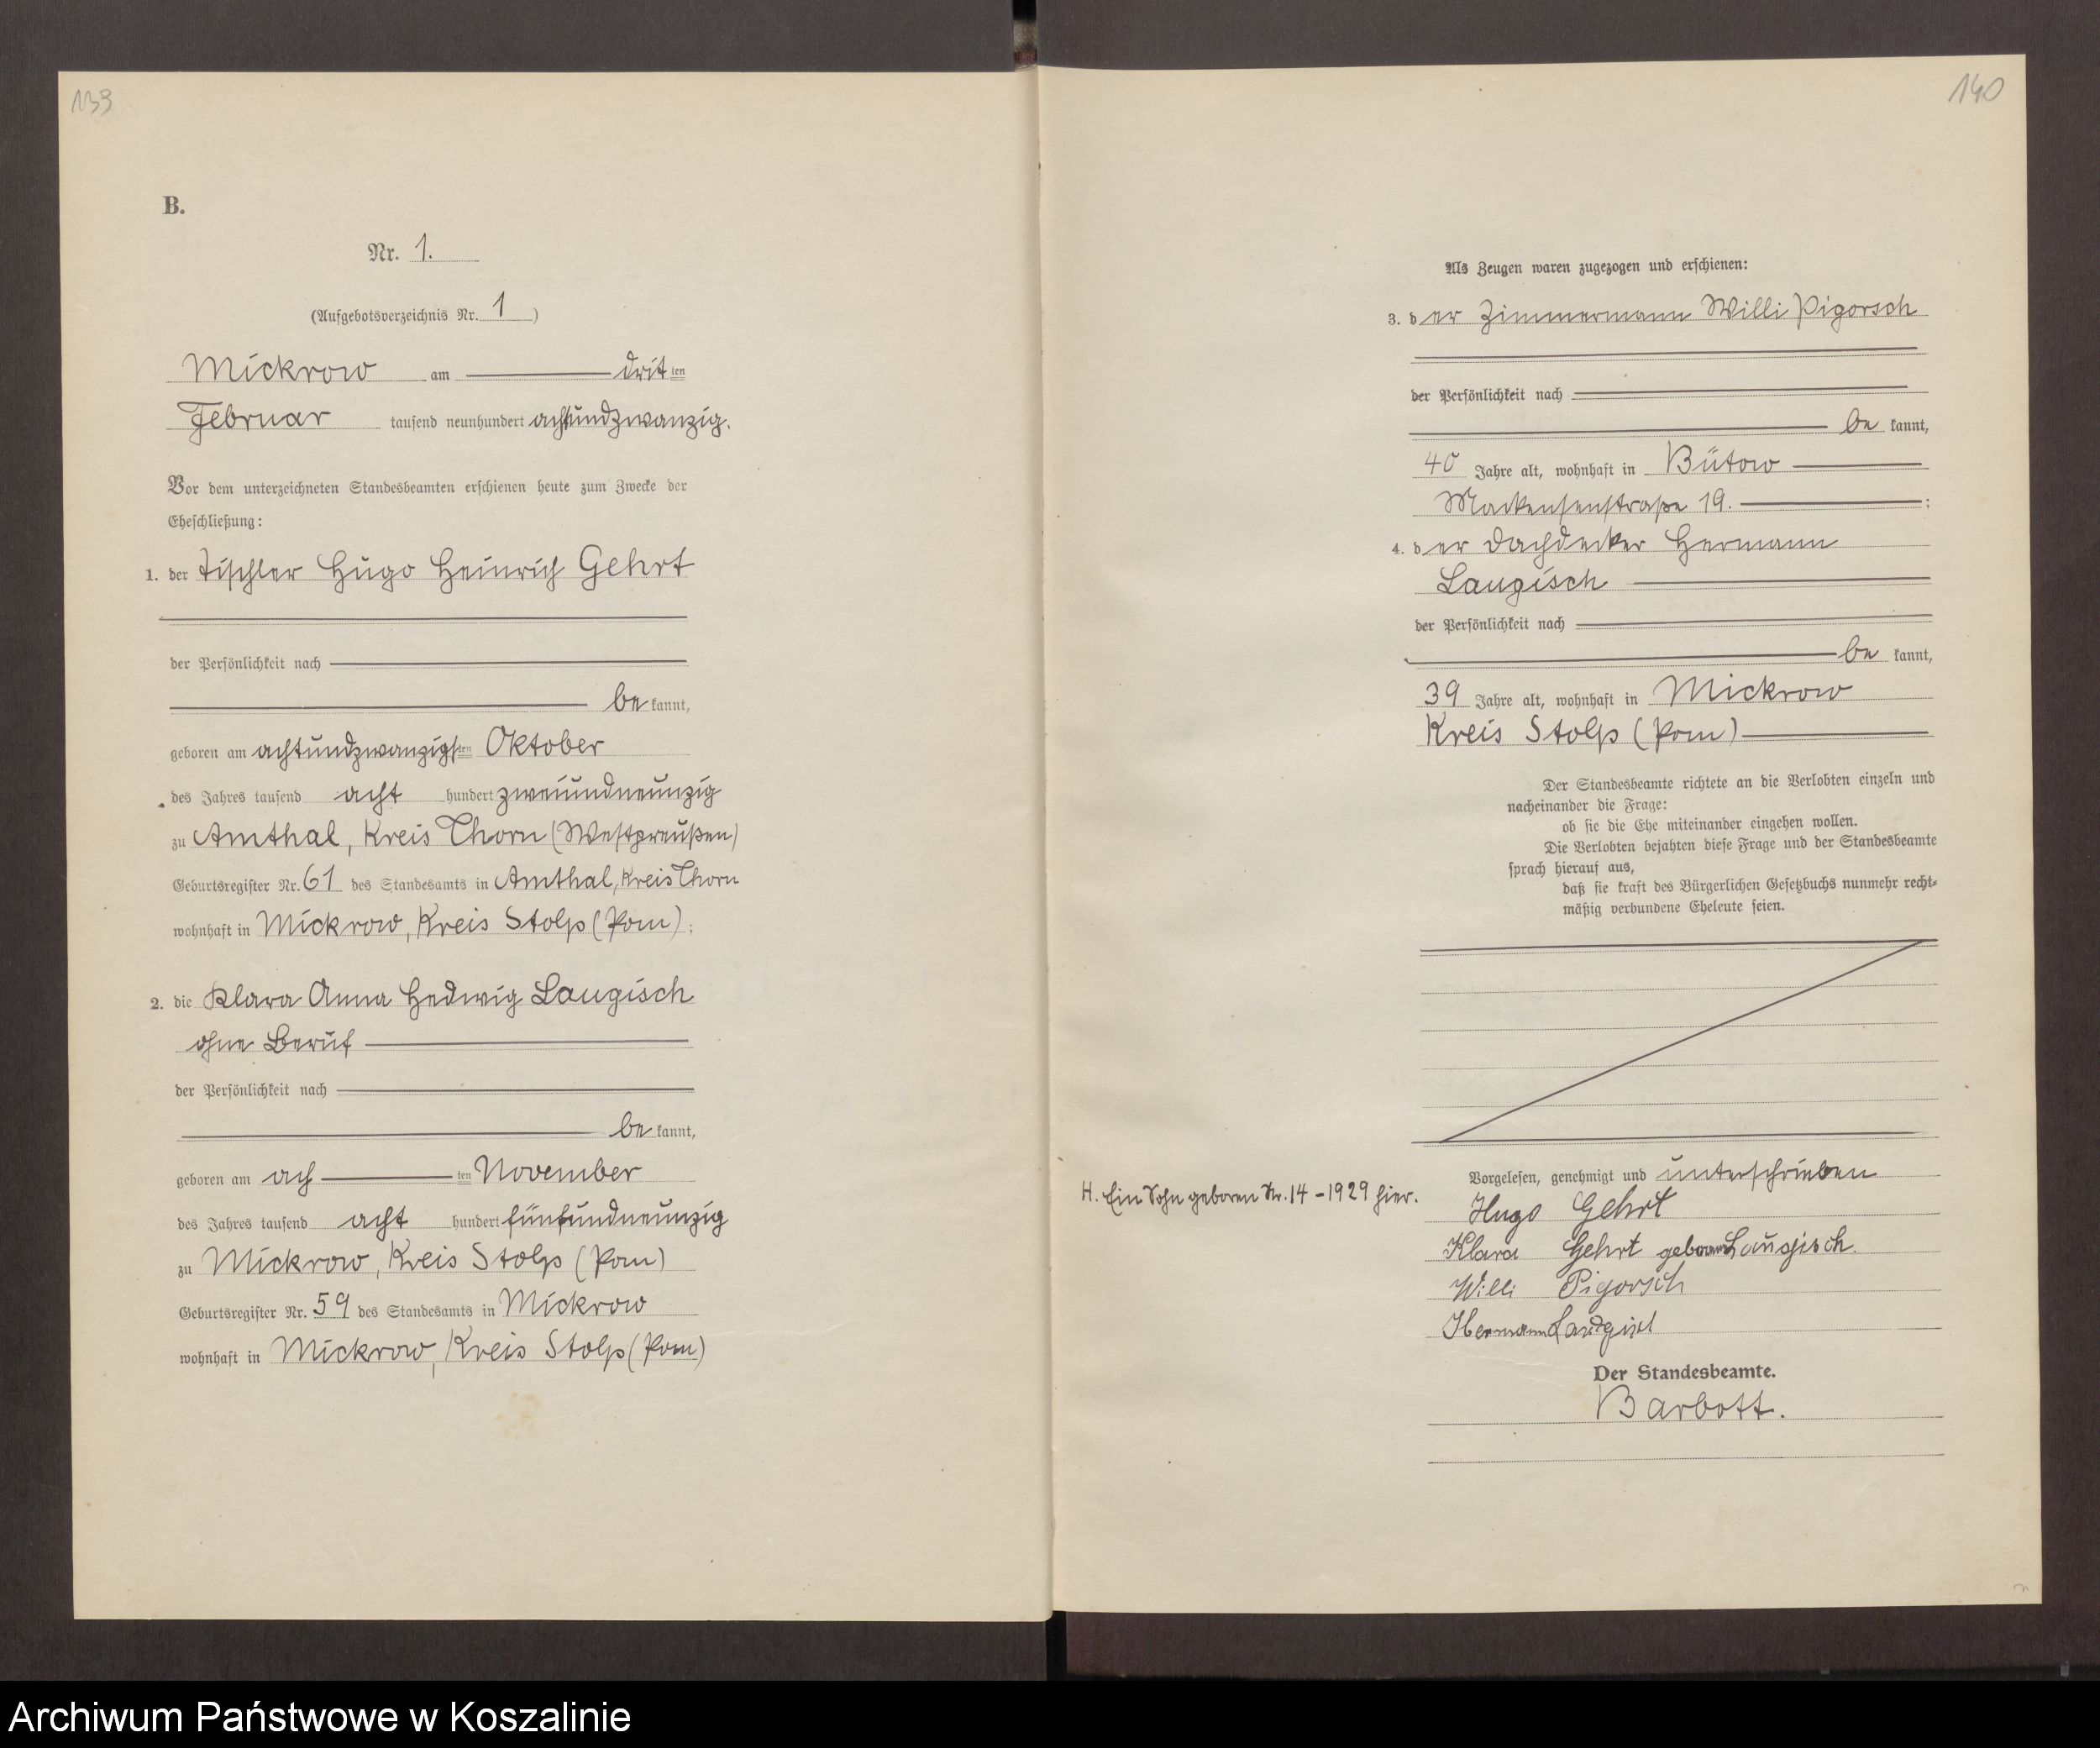 139
B.
Nr. 1.
(Aufgebotsverzeichnis Nr. 1)
Mickrow am dritten
Februar tausend neunhundert achtundzwanzig.
Vor dem unterzeichneten Standesbeamten erschienen heute zum Zwecke der
Eheschließung:
1. der Tischler Hugo Heinrich Gehrt
der Persönlichkeit nach
be kannt,
geboren am achtundzwanzigsten Oktober
des Jahres tausend acht hundert zweiundneunzig
zu Amthal, Kreis Thorn (Westpreußen)
Geburtsregister Nr. 61 des Standesamts in Amthal, Kreis Thorn
wohnhaft in Mickrow, Kreis Stolp (Pom);
2. die Klara Anna Hedwig Laugisch
ohne Beruf
der Persönlichkeit nach
be kannt,
geboren am ach ten November
des Jahres tausend acht hundert fünfundneunzig
zu Mickrow, Kreis Stolp (Pom)
Geburtsregister Nr. 59 des Standesamts in Mickrow
wohnhaft in Mickrow, Kreis Stolp (Pom)
140
Als Zeugen waren zugezogen und erschienen:
3. der Zimmermann Willi Pigorsch
der Persönlichkeit nach
be kannt,
40 Jahre alt, wohnhaft in Bütow
Mackensenstraße 19. ;
4. der Dachdecker Hermann
Laugisch
der Persönlichkeit nach
be kannt,
39 Jahre alt, wohnhaft in Mickrow
Kreis Stolp (Pom)
Der Standesbeamte richtete an die Verlobten einzeln und
nacheinander die Frage:
ob sie die Ehe miteinander eingehen wollen.
Die Verlobten bejahten diese Frage und der Standesbeamte
sprach hierauf aus,
daß sie kraft des Bürgerlichen Gesetzbuchs nunmehr recht-
mäßig verbundene Eheleute seien.
Vorgelesen, genehmigt und unterschrieben
H. Ein Sohn geboren Nr. 14 - 1929 hier.
Hugo Gehrt
Klara Gehrt geboren Laugisch.
Willi Pigorsch
Hermann
Der Standesbeamte.
Barbott.
Archiwum Państwowe w Koszalinie